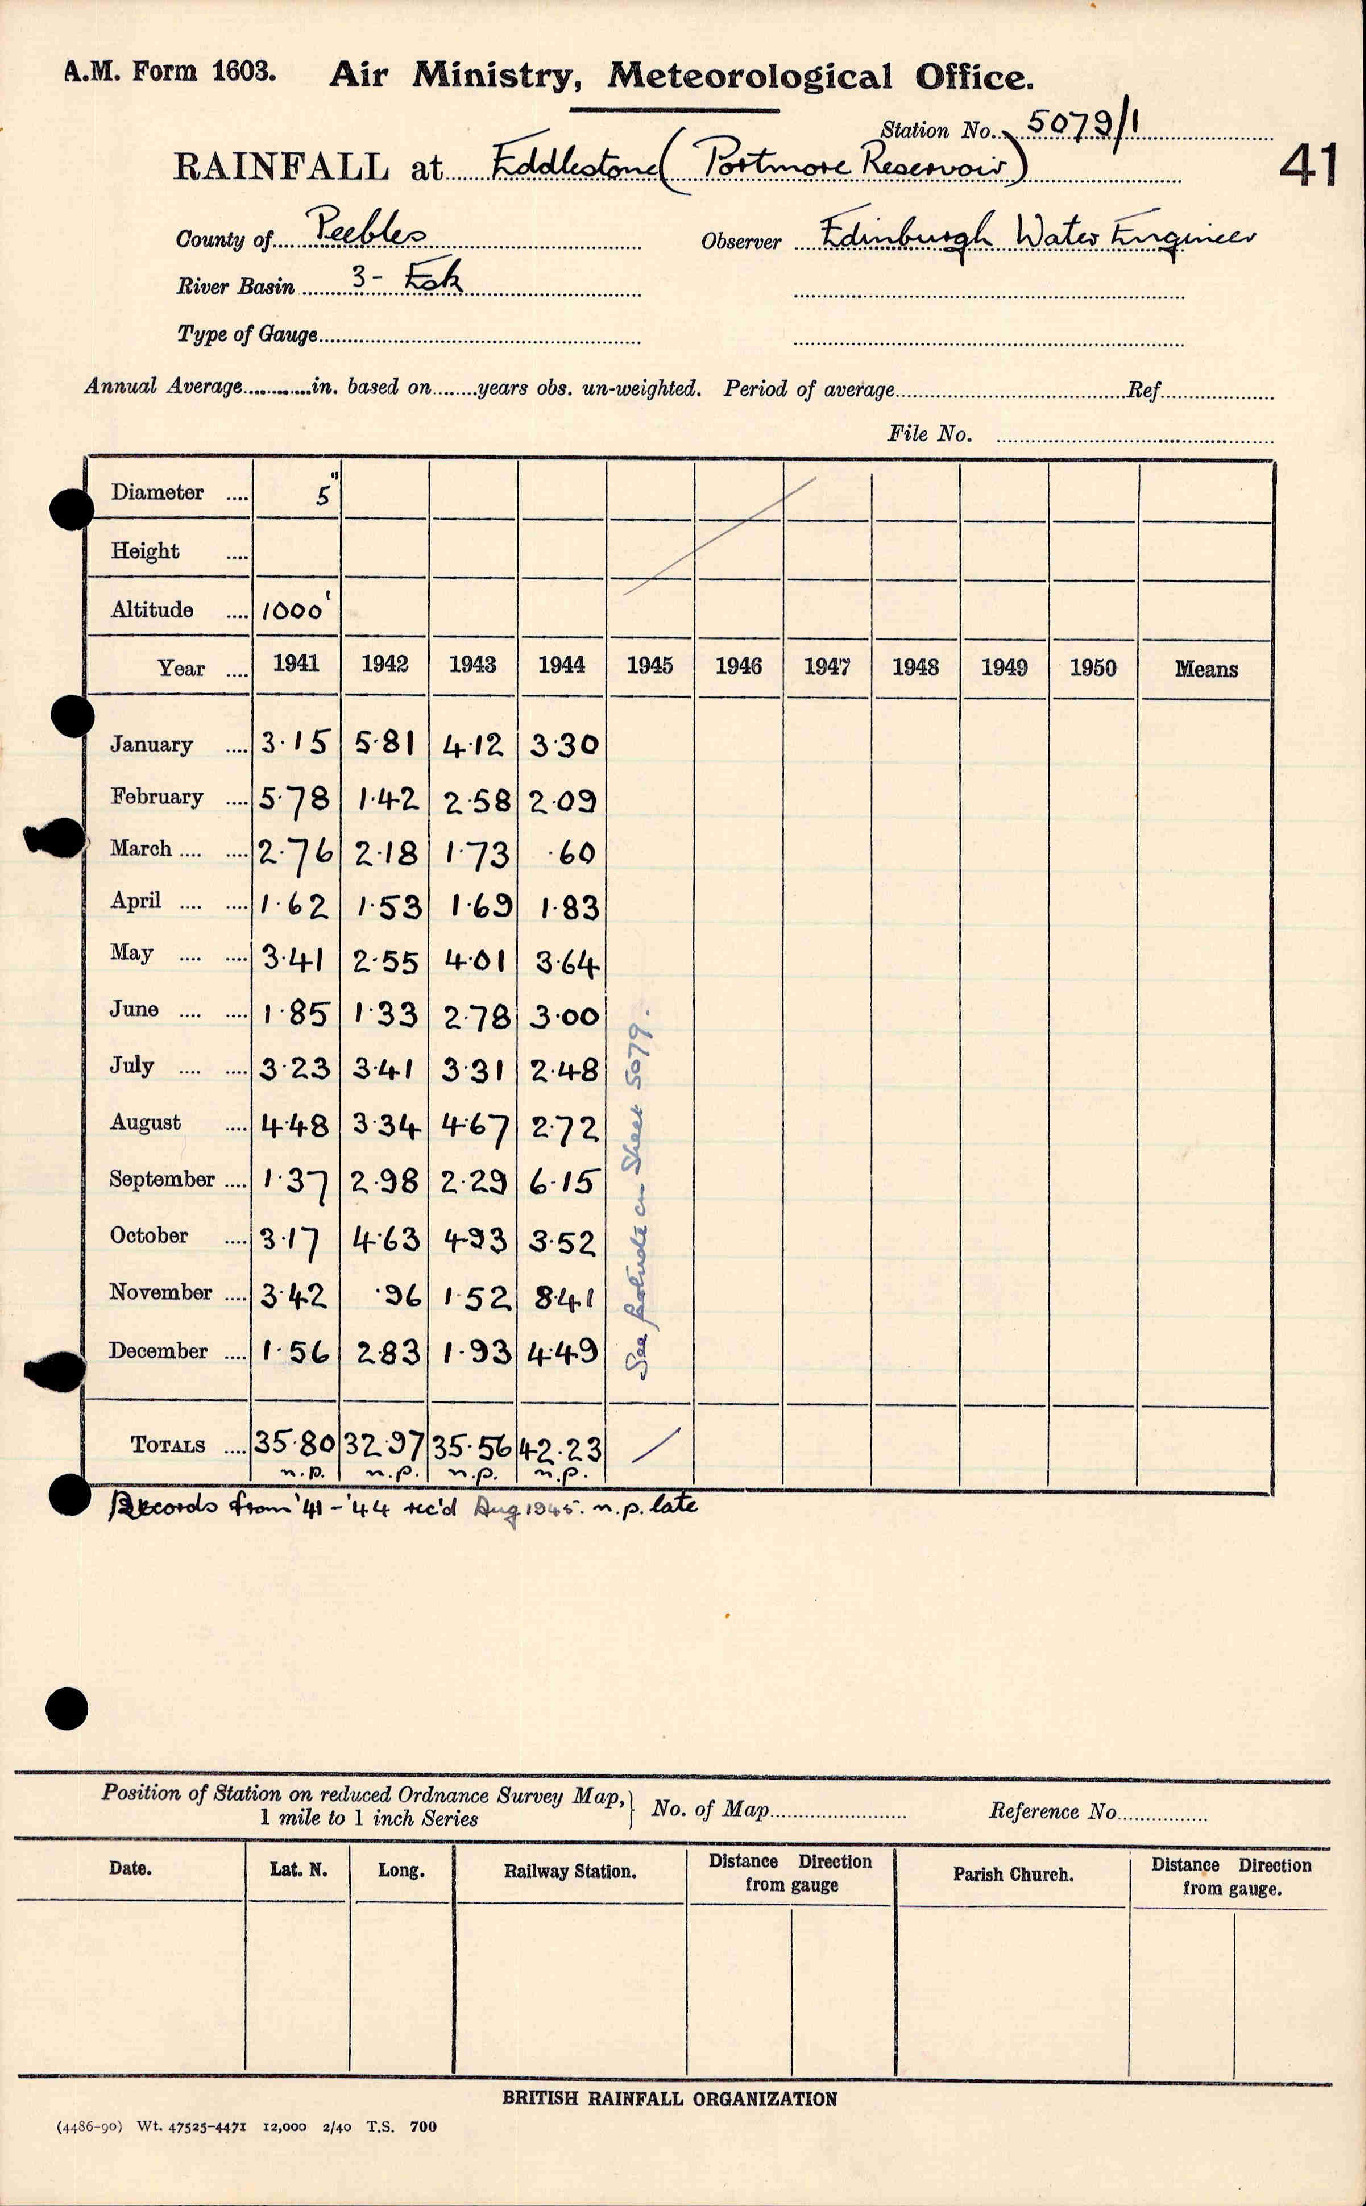 A.M. Form 1603. Air Ministry, Meteorological Office.
Station No. 5079/1
RAINFALL at Eddlestone (Portmore Reservoir)
41
County of Peebles Observer Edinburgh Water Engineer
River Basin 3 - Esk
Type of Gauge
Annual Average in. based on years obs. un-weighted. Period of average Ref
File No.
Diameter .... 5"
Height ....
Altitude .... 1000'
Year .... 1941 1942 1943 1944 1945 1946 1947 1948 1949 1950 Means
January .... 3·15 5·81 4·12 3·30
February .... 5·78 1·42 2·58 2·09
March .... .... 2·76 2·18 1·73 ·60
April .... .... 1·62 1·53 1·69 1·83
May .... .... 3·41 2·55 4·01 3·64
June .... .... 1·85 1·33 2·78 3·00
July .... .... 3·23 3·41 3·31 2·48
August .... 4·48 3·34 4·67 2·72
September .... 1·37 2·98 2·29 6·15
October .... 3·17 4·63 4·93 3·52
November .... 3·42 ·96 1·52 8·41
December .... 1·56 2·83 1·93 4·49
See footnote on Sheet 5079.
TOTALS .... 35·80 32·97 35·56 42·23
n.p. n.p. n.p. n.p.
Records from '41 - '44 rec'd Aug 1945. n.p. late
Position of Station on reduced Ordnance Survey Map,
1 mile to 1 inch Series
No. of Map Reference No.
Date. Lat. N. Long. Railway Station. Distance Direction from gauge Parish Church. Distance Direction from gauge.
BRITISH RAINFALL ORGANIZATION
(4486-90) Wt. 47525-4471 12,000 2/40 T.S. 700